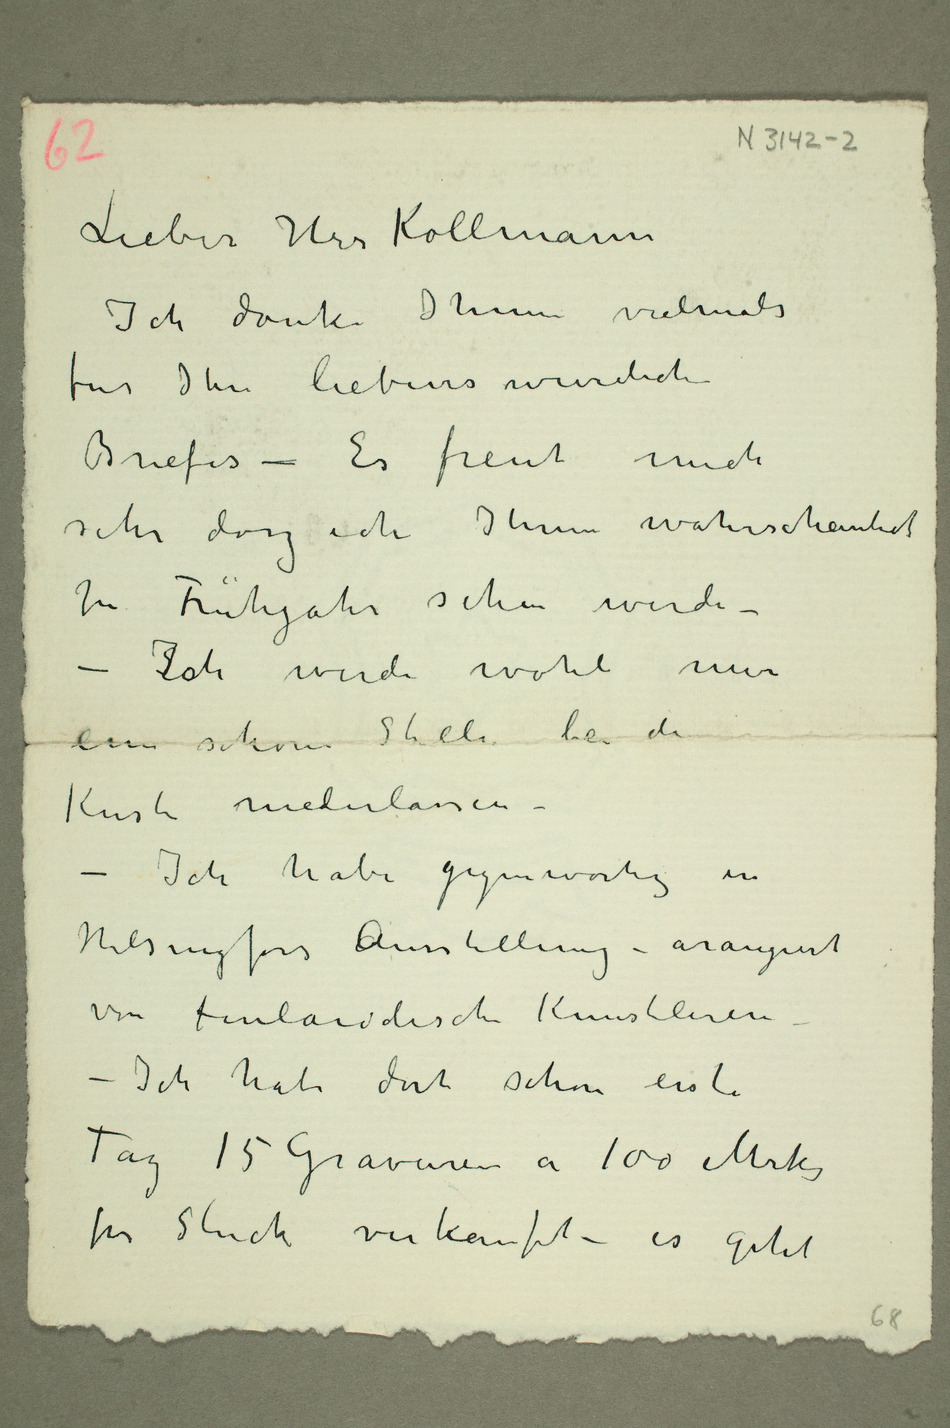 62
N 3142-2
Lieber Herr Kollmann
Ich danke Ihnen vielmals
fur Ihre liebenswurdich
Briefes – Es freut mich
sehr dasz ich Ihnen wahrscheinlich
zu Frühjahr sehen werde –
– Ich werde wohl mir
eine schöne Stelle bei die
Kuste niederlassen –
– Ich habe gegenwartig in
Helsingfors Ausstellung – arangiert
von finlandische Kunstleren –
– Ich habe dort schon erste
Tag 15 Gravuren a 100 Mrk
fur Stuck verkauft – es geht
68